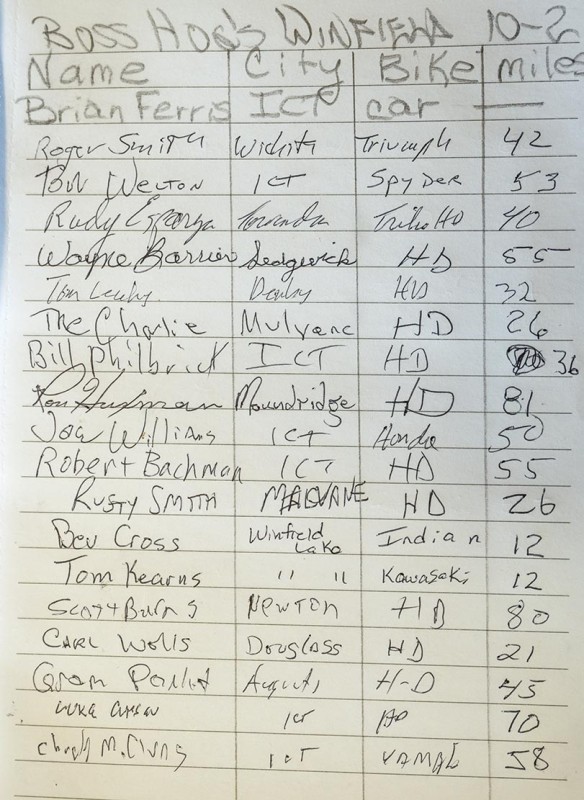 BOSS HOG'S WINFIELD 10-2
Name City Bike miles
Brian Ferris ICT car —
Roger Smith Wichita Triumph 42
Bob Welton ICT SPYDER 53
Rudy Esparza 40
Wayne Barrier Sedgwick HD 55
Tom HD 32
The Charlie Mulvane HD 26
Bill Philbrick ICT HD 36
Ron Moundridge HD 81
Joe Williams ICT Honda 50
Robert Bachman ICT HD 55
RUSTY SMITH MULVANE HD 26
Bev Cross Winfield Lake Indian 12
Tom Kearns " " Kawasaki 12
Scott Burns NEWTON HD 80
CARL Wolls Douglass HD 21
Augusta H-D 45
ICT HD 70
ICT 58